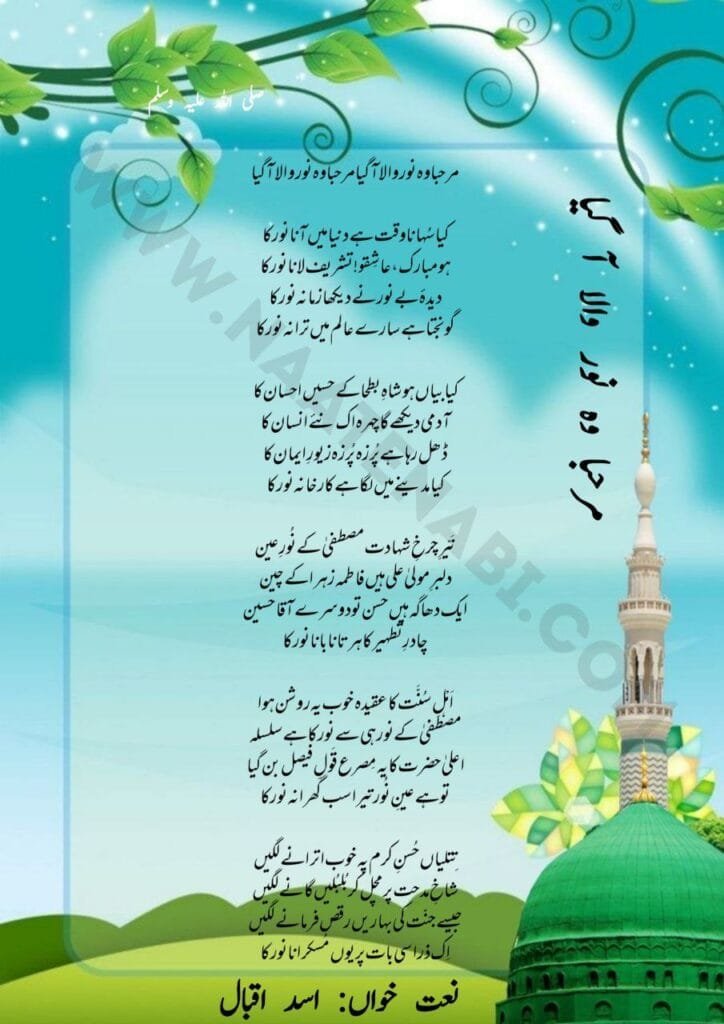 صلی اللہ علیہ وسلم
مرحبا وہ نور والا آ گیا
مرحبا وہ نور والا آ گیا مرحبا وہ نور والا آ گیا
کیا سُہانا وقت ہے دنیا میں آنا نور کا
ہو مبارک، عاشِقو! تشریف لانا نور کا
دیدۂ بے نور نے دیکھا زمانہ نور کا
گونجتا ہے سارے عالم میں ترانہ نور کا
کیا بیاں ہو شاہِ بطحا کے حسیں احسان کا
آدمی دیکھے گا چہرہ اک نئے انسان کا
ڈھل رہا ہے پُرزہ پُرزہ زیورِ ایمان کا
کیا مدینے میں لگا ہے کارخانہ نور کا
نیّرِ چرخِ شہادت مصطفیٰ کے نُورِ عین
دلبرِ مولیٰ علی ہیں فاطمہ زہرا کے چین
ایک دھاگہ ہیں حسن تو دوسرے آقا حسین
چادرِ تطہیر کا ہر تانا بانا نور کا
اَہلِ سُنَّت کا عقیدہ خوب یہ روشن ہوا
مصطَفیٰ کے نور ہی سے نور کا ہے سلسلہ
اعلیٰ حضرت کا یہ مِصرع قَولِ فیصل بن گیا
تو ہے عینِ نُور تیرا سب گھرانہ نور کا
تِتلیاں حُسنِ کرم پہ خوب اترانے لگیں
شاخِ مدحت پر مچل کر بُلبُلیں گانے لگیں
جیسے جنّت کی بہاریں رقص فرمانے لگیں
اِک ذرا سی بات پر یوں مُسکرانا نور کا
نعت خواں: اسد اقبال
WWW.NAATENABI.CO